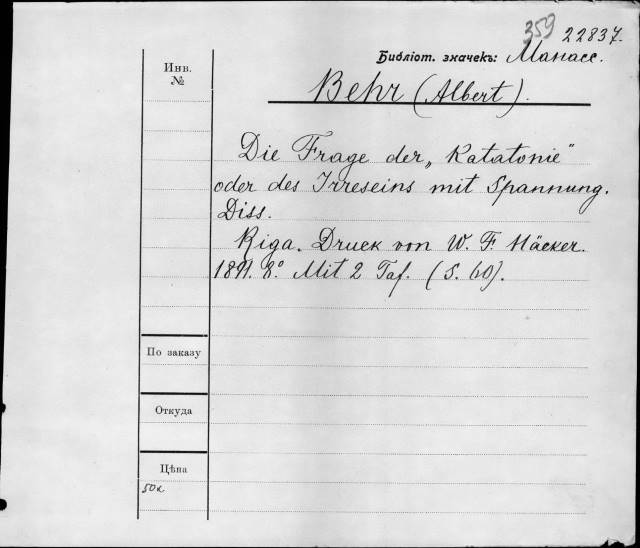 359 22837.
Библіот. значекъ: Манасс.
Инв. №
Behr (Albert).
Die Frage der „Katatonie“
oder des Irreseins mit Spannung.
Diss.
Riga. Druck von W. F. Häcker.
1891. 8°. Mit 2 Taf. (S. 60).
По заказу
Откуда
Цѣна
50к